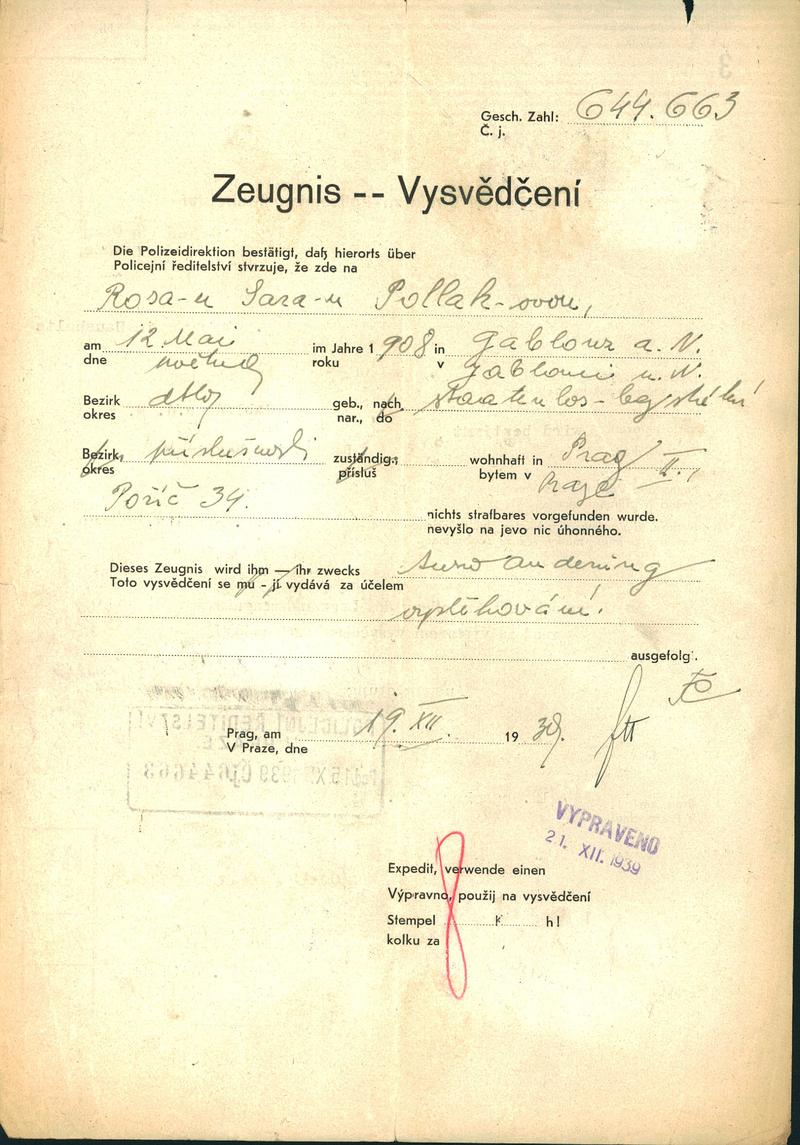 Gesch. Zahl: 644.663
Č. j.
Zeugnis -- Vysvědčení
Die Polizeidirektion bestätigt, daß hierorts über
Policejní ředitelství stvrzuje, že zde na
Rosa-u Sara-u Pollak-ovou,
am 12 Mai im Jahre 1908 in Gablonz a. N.
dne května roku v Jablonci n. N.
Bezirk dtto geb., nach staatenlos - bez státní
okres nar., do
Bezirk, příslušnosti zuständig., wohnhaft in Prag II.,
okres přísluš bytem v Praze
Poříč 34.
nichts strafbares vorgefunden wurde.
nevyšlo na jevo nic úhonného.
Dieses Zeugnis wird ihm — ihr zwecks Auswanderung
Toto vysvědčení se mu - jí vydává za účelem
vystěhování.
ausgefolg.
Prag, am 19. XII. 1939.
V Praze, dne
POLICEJNÍ ŘEDITELSTVÍ
1939 Čj 644663
VYPRAVENO
21. XII. 1939
Expedit, verwende einen
Výpravno, použij na vysvědčení
Stempel K hl
kolku za